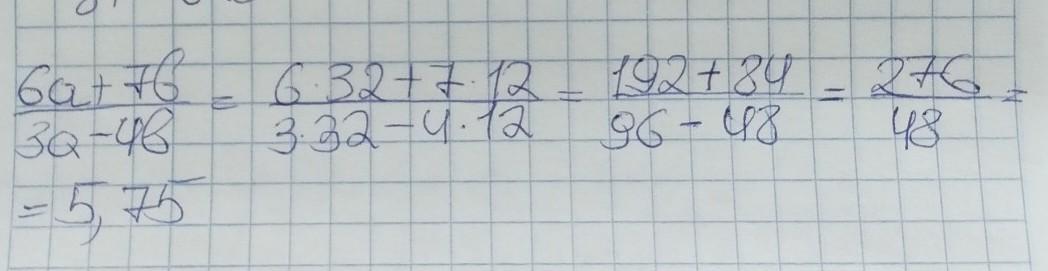 6а+7б/3а-4б = 6·32+7·12/3·32-4·12 = 192+84/96-48 = 276/48 =
= 5,75